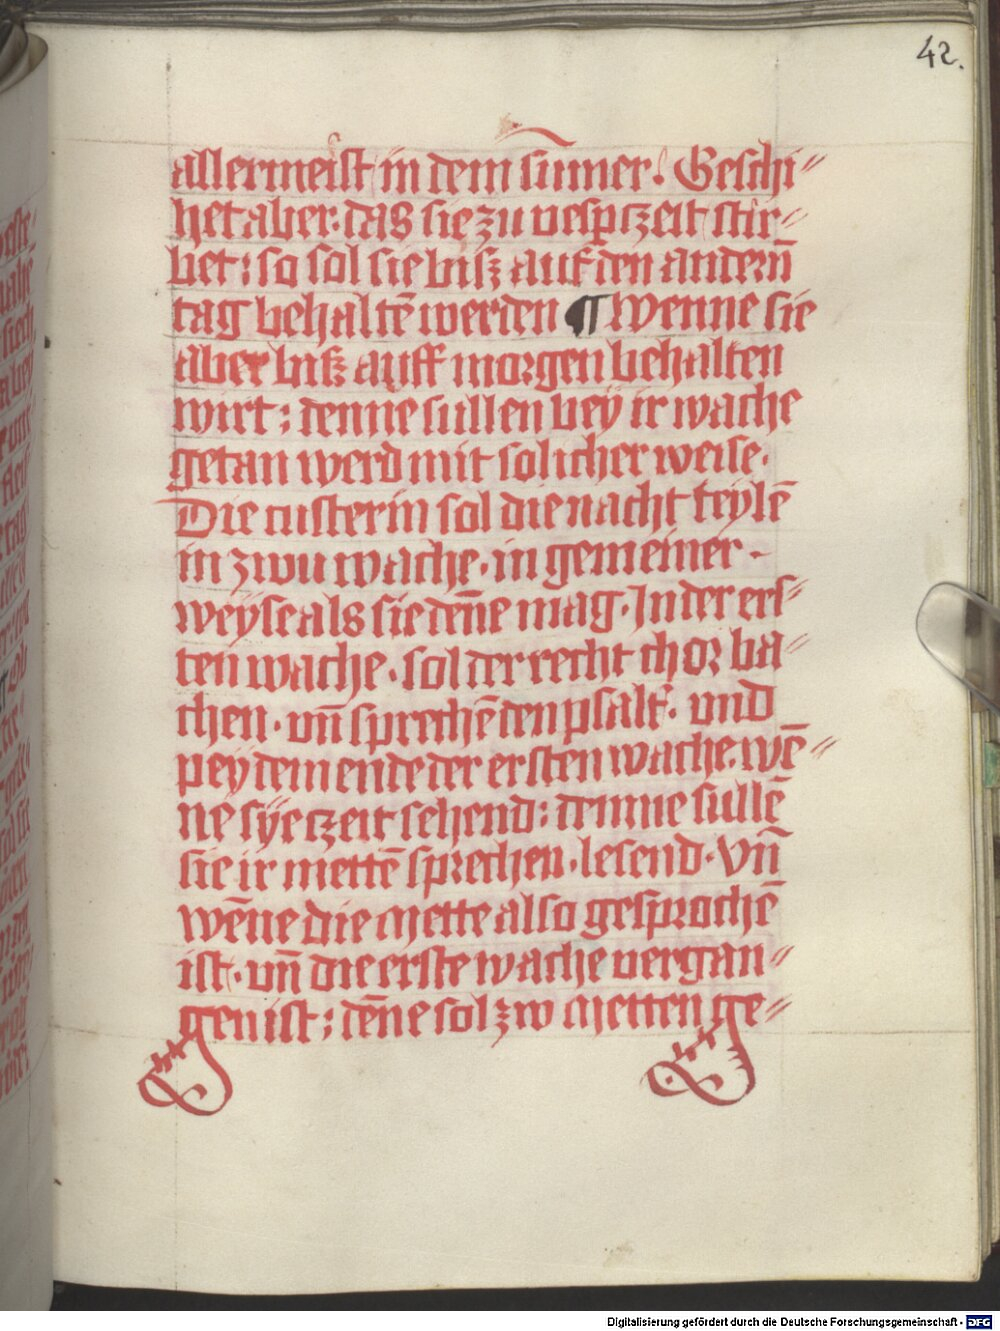 42.
allermeist in dem sum̄er. Geschi〃
het aber. das sie zu vespczeit stir〃
bet: so sol sie bisz auf den andern̄
tag behaltē werden ¶ Wenne sie
aber bisz auff morgen behalten
wirt: denne sullen bey ir wache
getan werd mit solicher weise.
Die custerin sol die nacht teylē
in zwu wache. in gemeiner -
weyse als sie den̄e mag. In der ers〃
ten wache. sol der recht chor ba〃
chen. vn̄ sprechē den psalt̄. vnd
pey dem ende der ersten wache. wē〃
ne sye czeit sehend: denne sullē
sie ir mettē sprechen. lesend. Vn̄
wēne die Mette also gesprochē
ist. vn̄ die erste wache vergan〃
gen ist: dēne sol zw Metten ge〃
Digitalisierung gefördert durch die Deutsche Forschungsgemeinschaft - DFG